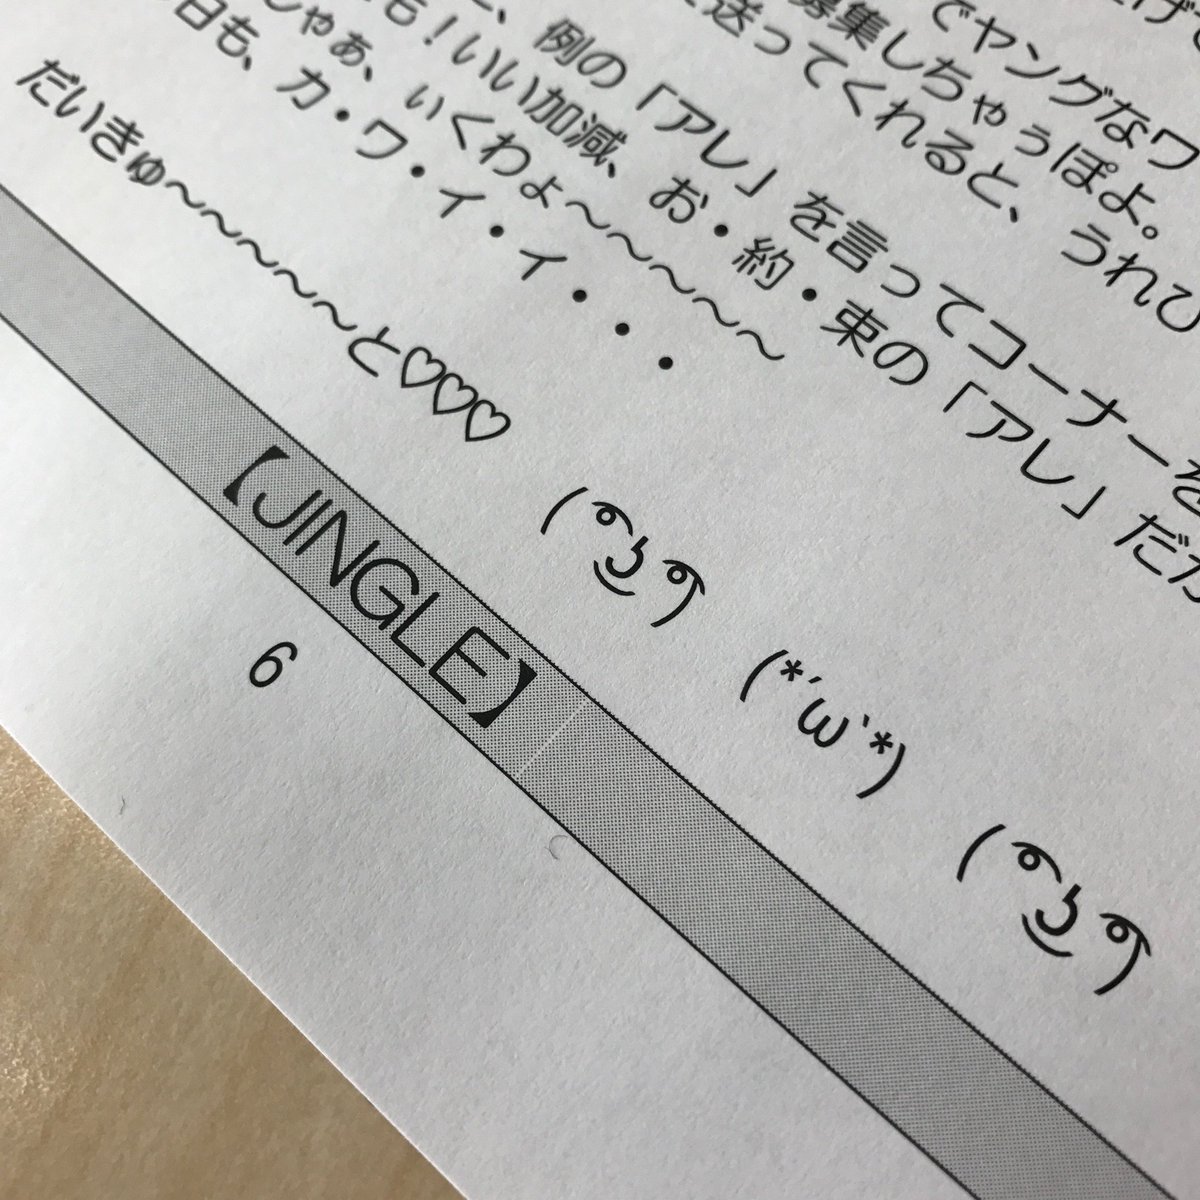 でヤングなワ
募集しちゃぅぽよ。
送ってくれると、うれひ
、例の「アレ」を言ってコーナーを
も！いい加減、お・約・束の「アレ」だか
しゃぁ、いくわょ～～～～～
日も、カ・ワ・イ・イ・・・
だいきゅ～～～～～と♡♡♡ ( ͡° ͜ʖ ͡°) (*´ω`*) ( ͡° ͜ʖ ͡°)
【JINGLE】
6